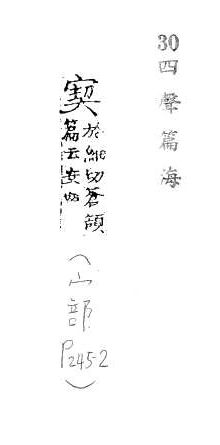 30四聲篇海
於切蒼頡
篇云安也
(宀部P245-2)